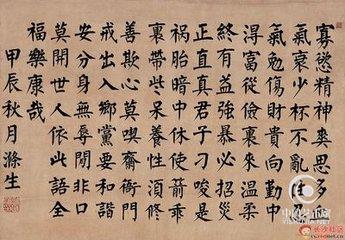 寡慾精神爽思多血
氣衰少杯不亂性忍
氣勉傷財貴向勤中
得富從儉裏來温柔
終有益强暴必招災
正直真君子刁唆是
禍胎暗中休使箭乖
裏帶些呆養性須修
善欺心莫喫齋衙門
戒出入鄉黨要和諧
安分身無辱閒非口
莫開世人依此語全
福樂康哉
甲辰秋月滌生
长沙社区